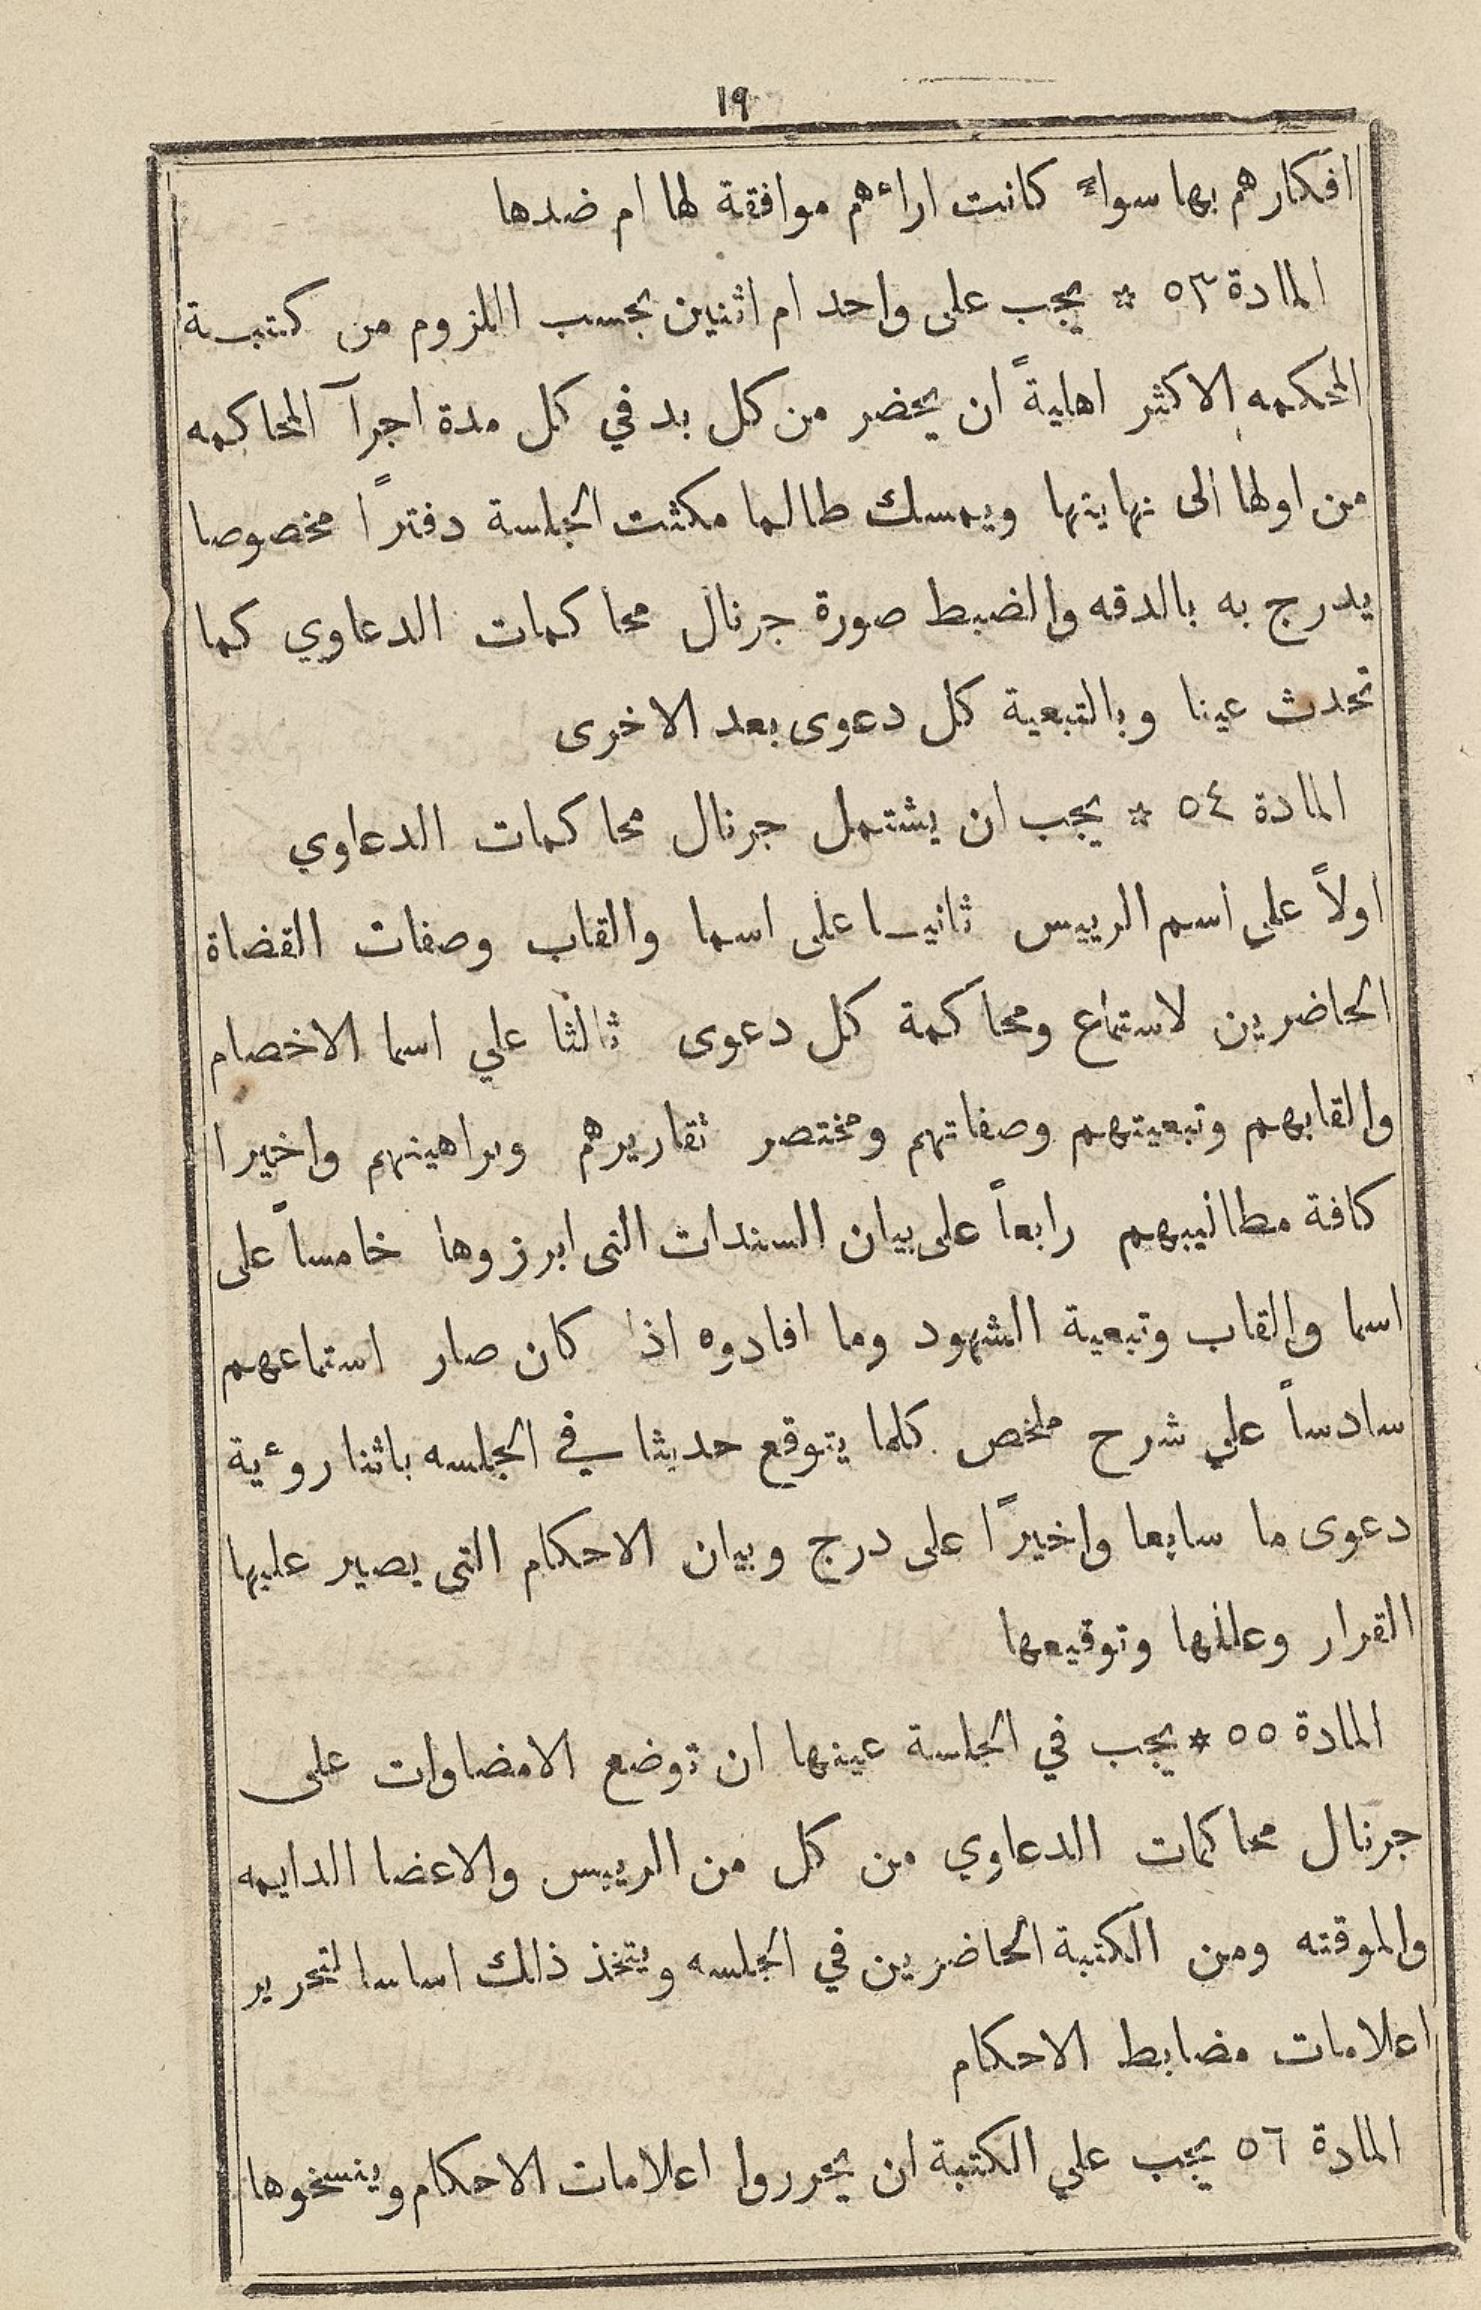 ١٩
افكارهم بها سواءً كانت اراءهم موافقة لها ام ضدها
المادة ٥٣ * يجب على واحد ام اثنين بحسب اللزوم من كتبة
المحكمه الاكثر اهليةً ان يحضر من كل بد في كل مدة اجرآ المحاكمه
من اولها الى نهايتها ويمسك طالما مكثت الجلسة دفترًا مخصوصا
يدرج به بالدقه والضبط صورة جرنال محاكمات الدعاوي كما
تحدث عينا وبالتبعية كل دعوى بعد الاخرى
المادة ٥٤ * يجب ان يشتمل جرنال محاكمات الدعاوي
اولاً على اسم الرييس ثانيا على اسما والقاب وصفات القضاة
الحاضرين لاستماع ومحاكمة كل دعوى ثالثا علي اسما الاخصام
والقابهم وتبعيتهم وصفاتهم ومختصر تقاريرهم وبراهينهم واخيرا
كافة مطاليبهم رابعاً على بيان السندات التى ابرزوها خامساً على
اسما والقاب وتبعية الشهود وما افادوه اذا كان صار استماعهم
سادساً علي شرح ملخص كلما يتوقع حديثا في الجلسه باثنا روءية
دعوى ما سابعا واخيرًا على درج وبيان الاحكام التى يصير عليها
القرار وعللها وتوقيعها
المادة ٥٥ * يجب في الجلسة عينها ان توضع الامضاوات على
جرنال محاكمات الدعاوي من كل من الرييس والاعضا الدايمه
والموقته ومن الكتبة الحاضرين في الجلسه ويتخذ ذالك اساسا لتحرير
اعلامات مضابط الاحكام
المادة ٥٦ يجب علي الكتبة ان يحرروا اعلامات الاحكام وينسخوها